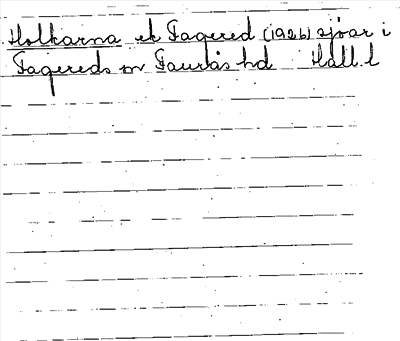 Holkarna ek Fagered (1926) sjöar i
Fagereds sn Faurås hd Hall. l